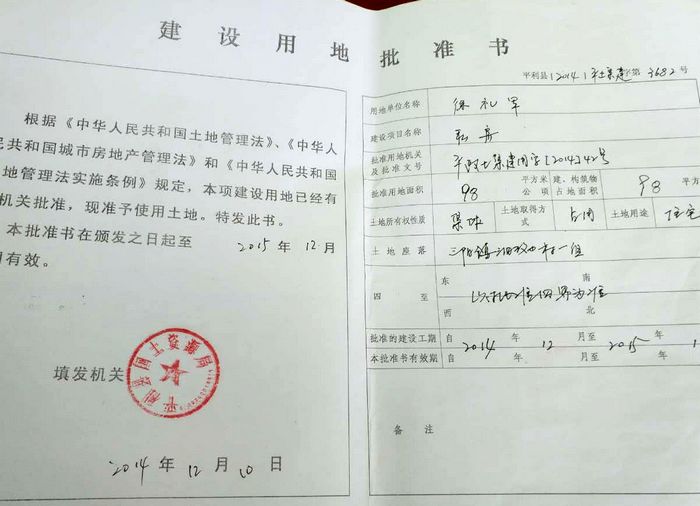 建设用地批准书
根据《中华人民共和国土地管理法》、《中华人
民共和国城市房地产管理法》和《中华人民共和国
地管理法实施条例》规定，本项建设用地已经有
机关批准，现准予使用土地。特发此书。
本批准书在颁发之日起至 2015 年 12 月
有效。
平利县国土资源局
填发机关
2014 年 12 月 10 日
平利县(2014)平土集建字第3682号
用地单位名称 徐礼军
建设项目名称 私房
批准用地机关及批准文号 平政土集建用字[2014]42号
批准用地面积 98 平方米 公顷 建、构筑物占地面积 98 平方
土地所有权性质 集体 土地取得方式 占用 土地用途 住宅
土地座落 三阳镇 村一组
四至 东 南 西 北 以 四界为准
批准的建设工期 自 年 月至 年
2014 12 2015 1
本批准书有效期 自 年 月至 年
备注